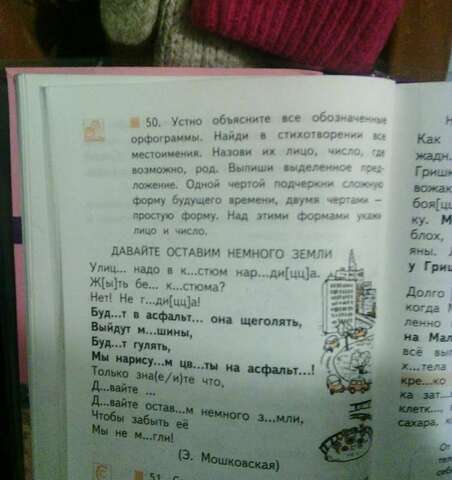 50. Устно объясните все обозначенные
орфограммы. Найди в стихотворении все
местоимения. Назови их лицо, число, где
возможно, род. Выпиши выделенное пред-
ложение. Одной чертой подчеркни сложную
форму будущего времени, двумя чертами –
простую форму. Над этими формами укажи
лицо и число.
ДАВАЙТЕ ОСТАВИМ НЕМНОГО ЗЕМЛИ
Улиц... надо в к...стюм нар...ди[цц]а.
Ж[ы]ть бе... к...стюма?
Нет! Не г...ди[цц]а!
Буд...т в асфальт... она щеголять,
Выйдут м...шины,
Буд...т гулять,
Мы нарису...м цв...ты на асфальт...!
Только зна(е/и)те что,
Д...вайте ...
Д...вайте остав...м немного з...мли,
Чтобы забыть её
Мы не м...гли!
(Э. Мошковская)
51.
Как
жадн.
Гришк
вожак
боя[цц]
ку. М
блох,
яны.
у Гриш
Долго
когда М
ленно
на Мал
всё вып
х...тела
кре...ко
ка зат...
клетк...,
сахара,
От